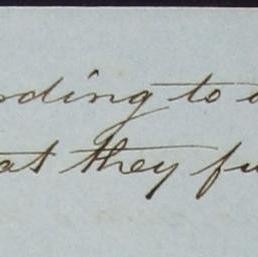 nding to
at they fu